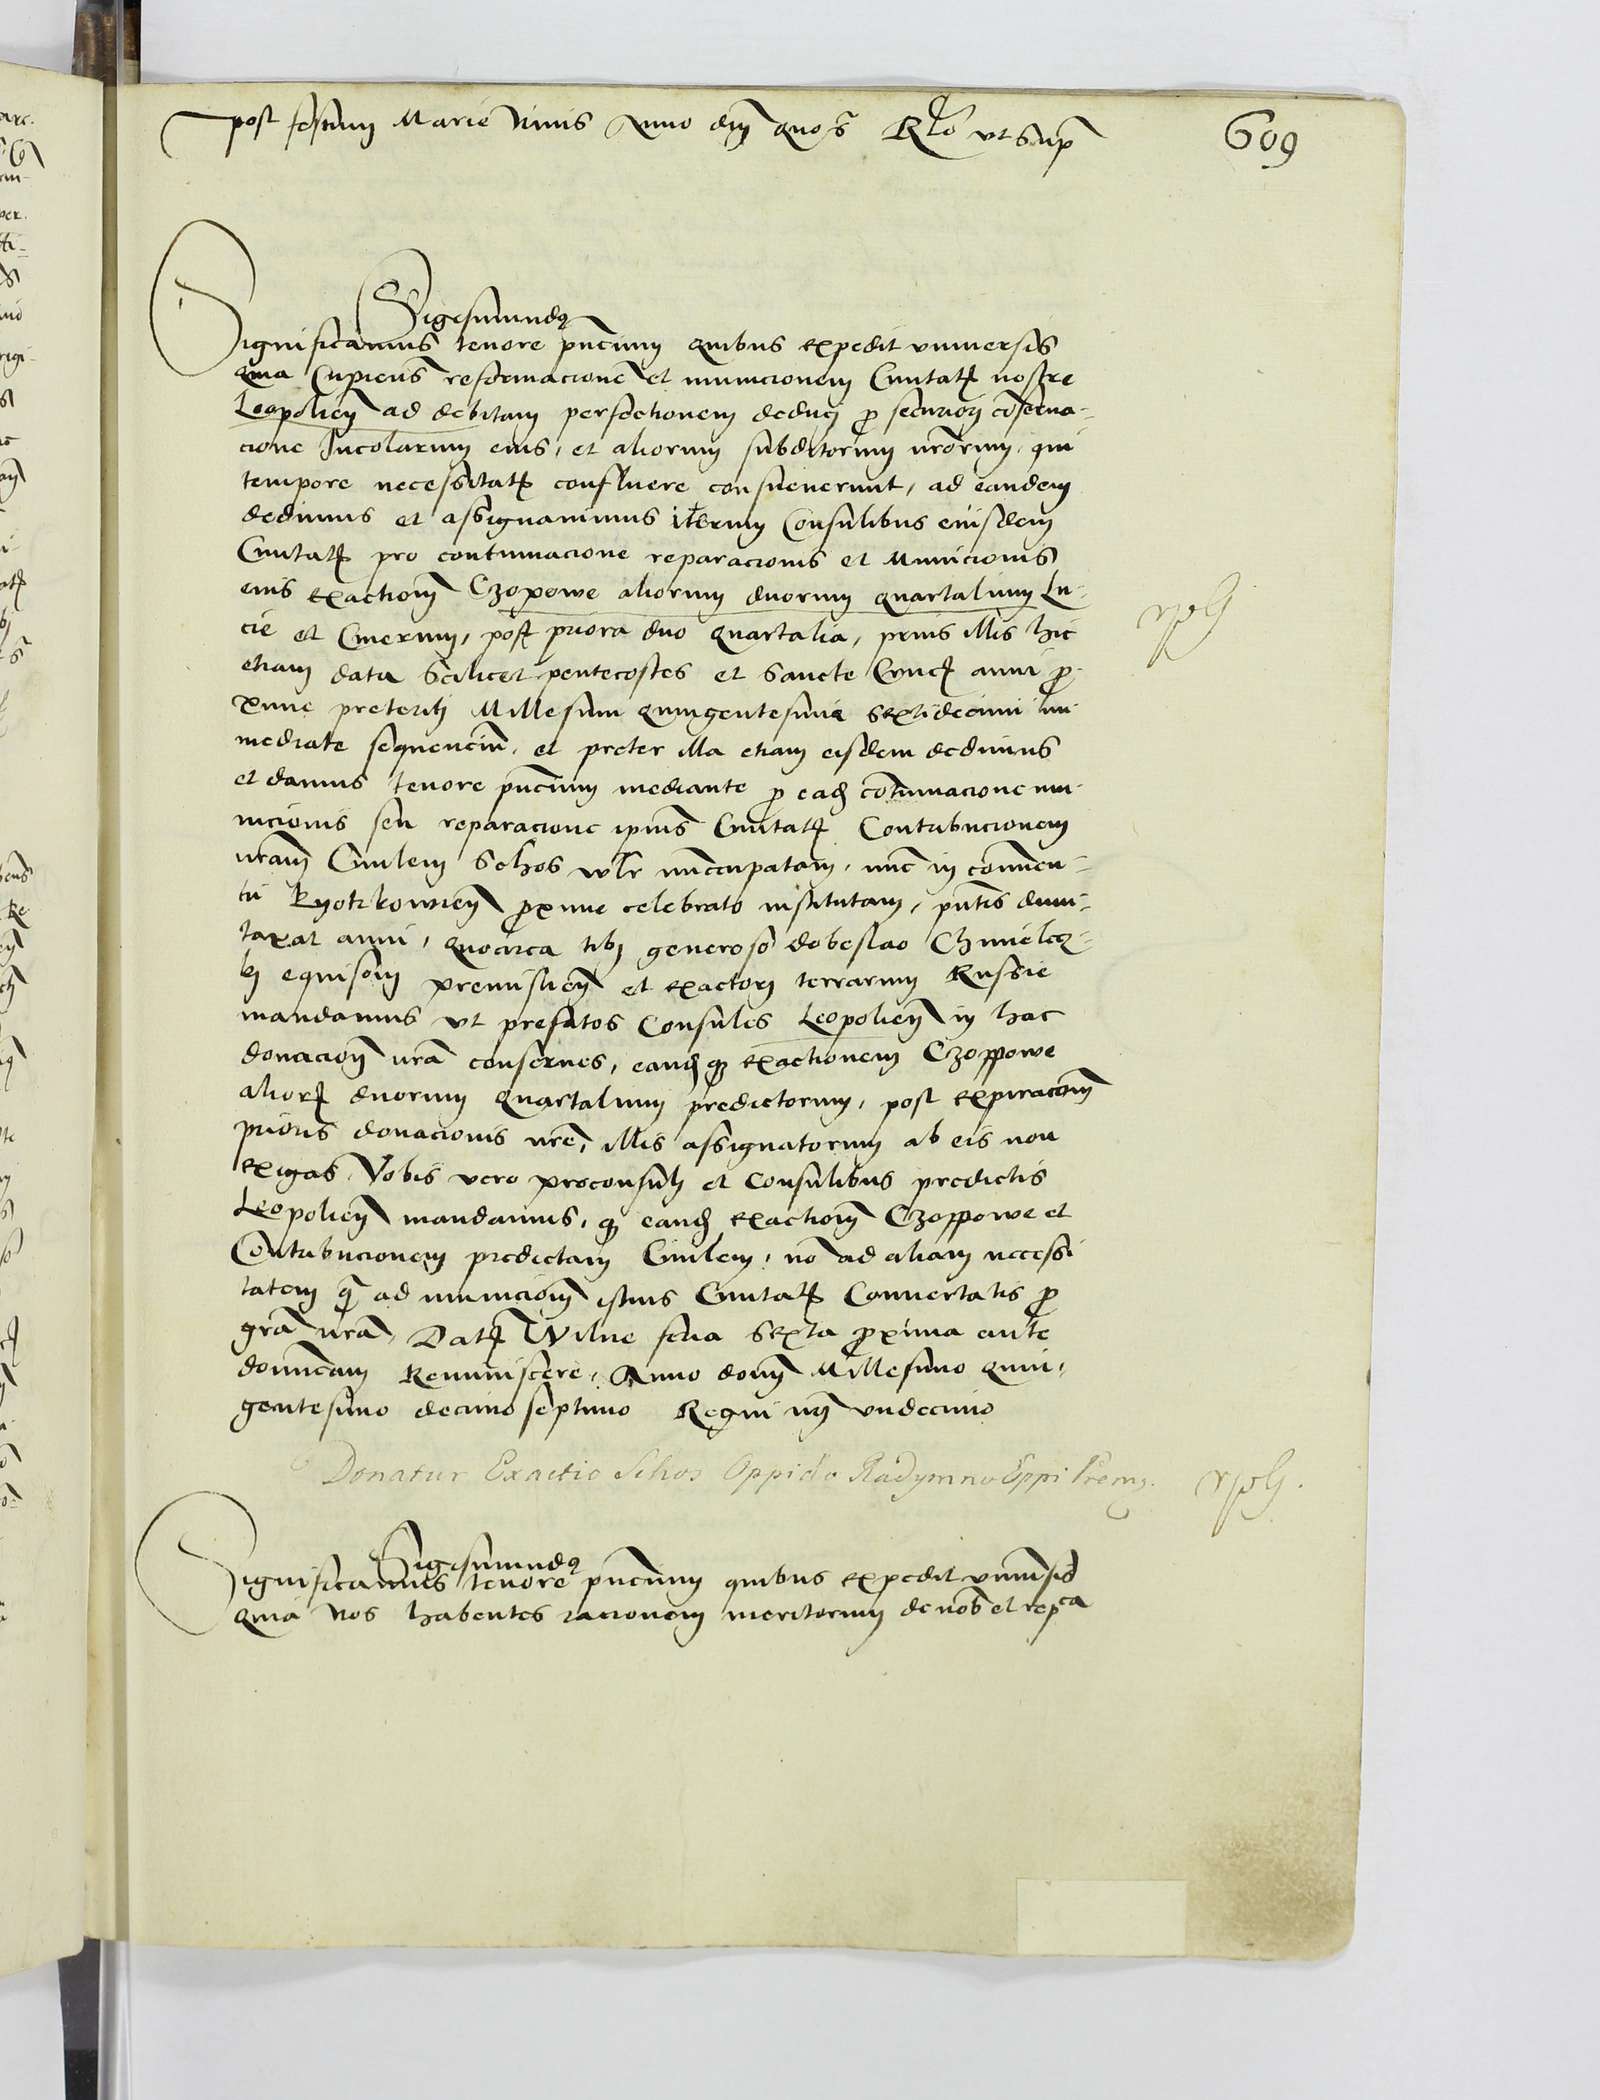 post festum Marie Nivis Anno dnj quo s. Rlo ut sup
609
Sigismundus
Significamus tenore pncium quibus expedit universis
quia Cupientes reformacione et municionem Civitatis nostre
Leopolien ad debitam perfectionem deduci p securiori conserva-
cione Incolarum eius, et aliorum subditorum nrorum, qui
tempore necessitatis confluere consueverunt, ad eandem
dedimus et assignavimus iterum Consulibus eiusdem
Civitatis pro continuacione reparacionis et Municionis
eius exactionem Czopowe aliorum duorum quartalium Lu-
cie et Cinerum, post priora duo quartalia, prius illis hic
etiam data scilicet pentecostes et Sancte Crucis anni pro-
xime preteriti Millesimi quingentesimi sextidecimi im-
mediate sequencium, et preter illa etiam eisdem dedimus
et damus tenore pncium mediante p eade continuacione mu-
nicionis seu reparacione ipsius Civitatis Contribucionem
nram Civilem Schos wlr nuncupatam, nunc in conven-
tu Pyotrkowien proxime celebrato institutam, pntis dum-
taxat anni, quocirca tibi generoso Dobeslao Chmielecz-
ki equisoni Premislien et exactori terrarum Russie
mandamus ut prefatos Consules Leopolien in hac
donacione nra conserves, eandque exactionem Czoppowe
aliorum duorum quartalium predictorum, post expiracionem
prioris donacionis nre, illis assignatorum ab eis non
exigas. Vobis vero proconsuli et Consulibus predictis
Leopolien mandamus, quod eande exactionem Czoppowe et
Contribucionem predictam Civilem, no ad aliam necessi
tatem qua ad municionem istius Civitatis Convertatis p
gra nra, Datum Wilne feria Sexta proxima ante
dominicam Reminiscere, Anno domini Millesimo quin-
gentesimo decimo septimo Regni nri undecimo
Donatur Exactio Schos Oppido Radymno Eppi Prem.
Sigismundus
Significamus tenore pncium quibus expedit universis
quia Nos habentes racionem meritorum de nob et repca